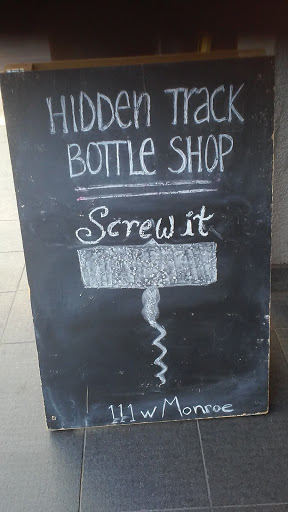 HIDDEN TRACK
BOTTLE SHOP
Screw it
111 W Monroe